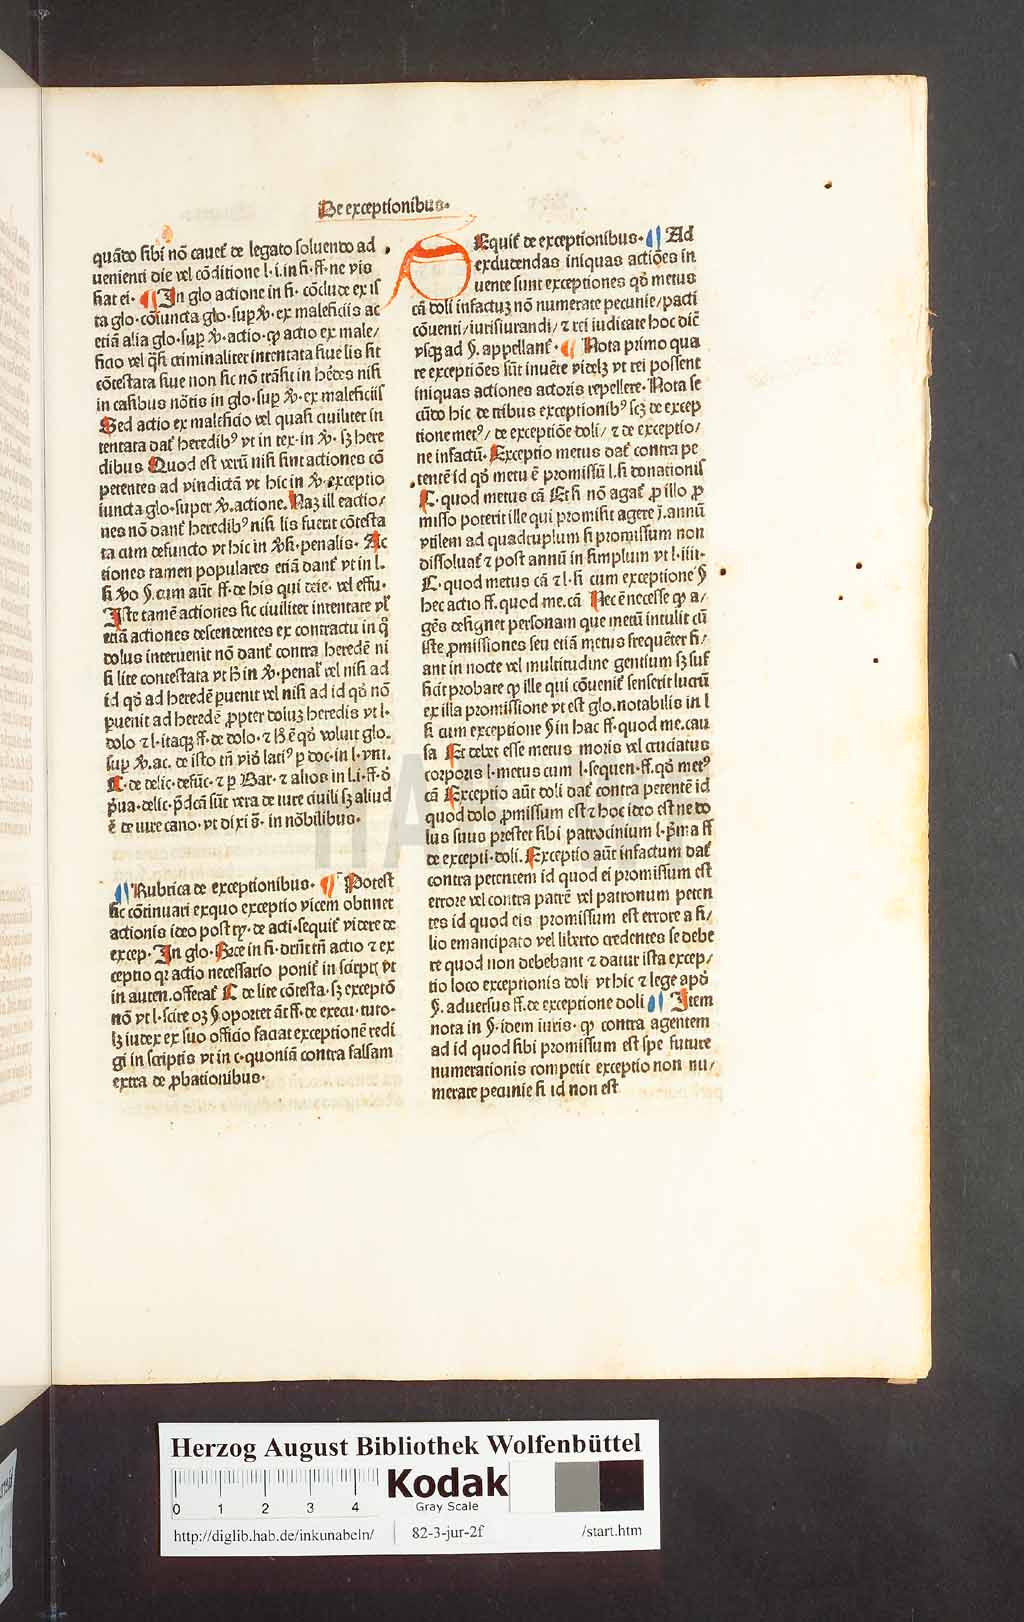 De exceptionibus.
quãdo sibi nõ cauet᷒ de legato soluendo ad
uenienti die vel cõditione l. i. in fi. ff. ne vis
fiat ei. ¶ In glo actione in fi. cõclude ex is
ta glo. cõiuncta glo. sup ꝟ. ex maleficiis ac
etiã alia glo. sup ꝟ. actio. ꝙ actio ex male/
ficio vel q̃si criminaliter intentata siue lis sit
cõtestata siue non sic nõ trãsit in hẽdes nisi
in casibus nõtis in glo. sup ꝟ. ex maleficiis
Sed actio ex maleficio vel quasi ciuiliter in
tentata dat᷒ heredibꝰ vt in tex. in ꝟ. sꝫ here
dibus Quod est verũ nisi sint actiones cõ
petentes ad vindictã vt hic in ꝟ. exceptio
iuncta glo. super ꝟ. actione. Naꝫ ill eactio/
nes nõ dant᷒ heredibꝰ nisi lis fuerit cõtesta
ta cum defuncto vt hic in ꝟsi. penalis. Ac
tiones tamen populares etiã dant᷒ vt in l.
si ꝟo §. cum aũt ff. de his qui deie. vel effu.
Iste tamẽ actiones sic ciuiliter intentare vl᷒
etiã actiones descendentes ex contractu in q̊
dolus interuenit nõ dant᷒ contra heredẽ ni
si lite contestata vt h̃ in ꝟ. penal᷒ vel nisi ad
id qđ ad heredẽ ꝑuenit vel nisi ad id qđ nõ
ꝑuenit ad heredẽ ꝓpter doluꝫ heredis vt l.
dolo ⁊ l. itaqꝫ ff. de dolo. ⁊ h̃ ẽ qđ voluit glo.
sup ꝟ. ac. de isto tñ viđ latiꝰ ꝑ doc. in l. vni.
C. de delic. defũc. ⁊ ꝑ Bar. ⁊ alios in l. i. ff. đ
p̃ua. delic. p̃dcã sũt vera de iure ciuili sꝫ aliud
ẽ de iure cano. vt dixi s̃. in nõbilibus.
¶ Rubrica de exceptionibus. ¶ Potest
sic cõtinuari exquo exceptio vicem obtinet
actionis ideo post tr̃. de acti. sequit᷒ videre de
excep. In glo. Nece in fi. drñt tñ actio ⁊ ex
ceptio qꝛ actio necessario ponit᷒ in scriptꝭ vt
in auten. offerat᷒ C de lite cõtesta. sꝫ exceptõ
nõ vt l. scire oꝫ §. oportet ãt ff. de excu. tuto.
lꝫ iudex ex suo officio faciat exceptionẽ redi
gi in scriptis vt in c. quoniã contra falsam
extra de ꝓbationibus.
Equit᷒ de exceptionibus. ¶ Ad
excludendas iniquas actiões in
uente sunt exceptiones qđ metus
cã doli infactuꝫ nõ numerate pecunie/ pacti
cõuenti/ iurisiurandi/ ⁊ rei iudicate hoc dić
vsqꝫ ad §. appellant᷒. ¶ Nota primo qua
re exceptiões sũt inuẽte videlꝫ vt rei possent
iniquas actiones actoris repellere. Nota se
cũdo hic de tribus exceptionibꝰ scꝫ de excep
tione metꝰ/ de exceptiõe doli/ ⁊ de exceptio/
ne infactũ. Exceptio metus dat᷒ contra pe
tentẽ id qđ metu ẽ promissũ l. si donationis
C. quod metus cã Et si nõ agat᷒ ꝓ illo ꝓ
misso poterit ille qui promisit agere ĩ. annũ
vtilem ad quadruplum si promissum non
dissoluat᷒ ⁊ post annũ in simplum vt l. iiii.
C. quod metus cã ⁊ l. si cum exceptione §
hec actio ff. quod me. cã Nec ẽ necesse ꝙ a/
gẽs designet personam que metũ intulit cũ
iste ꝓmissiones seu etiã metus frequẽter fi/
ant in nocte vel multitudine gentium sꝫ suf
ficit probare ꝙ ille qui cõuenit᷒ senserit lucrũ
ex illa promissione vt est glo. notabilis in l
si cum exceptione § in hac ff. quod me. cau
sa Et debet esse metus moris vel cruciatus
corporis l. metus cum l. sequen. ff. qđ metꝰ
cã Exceptio aũt doli dat᷒ contra petentẽ id
quod dolo ꝓmissum est ⁊ hoc ideo est ne do
lus suus prestet sibi patrocinium l. p̃ma ff
de excepti. doli. Exceptio aũt infactum dat᷒
contra petentem id quod ei promissum est
errore vel contra patrẽ vel patronum peten
tes id quod eis promissum est errore a fi/
lio emancipato vel liberto credentes se debe
re quod non debebant ⁊ datur ista excep/
tio loco exceptionis doli vt hic ⁊ lege apđ
§. aduersus ff. de exceptione doli ¶ Item
nota in §. idem iuris. ꝙ contra agentem
ad id quod sibi promissum est spe future
numerationis competit exceptio non nu/
merate pecunie si id non est
HAB
Herzog August Bibliothek Wolfenbüttel
0 1 2 3 4
Kodak
Gray Scale
http://diglib.hab.de/inkunabeln/ 82-3-jur-2f /start.htm